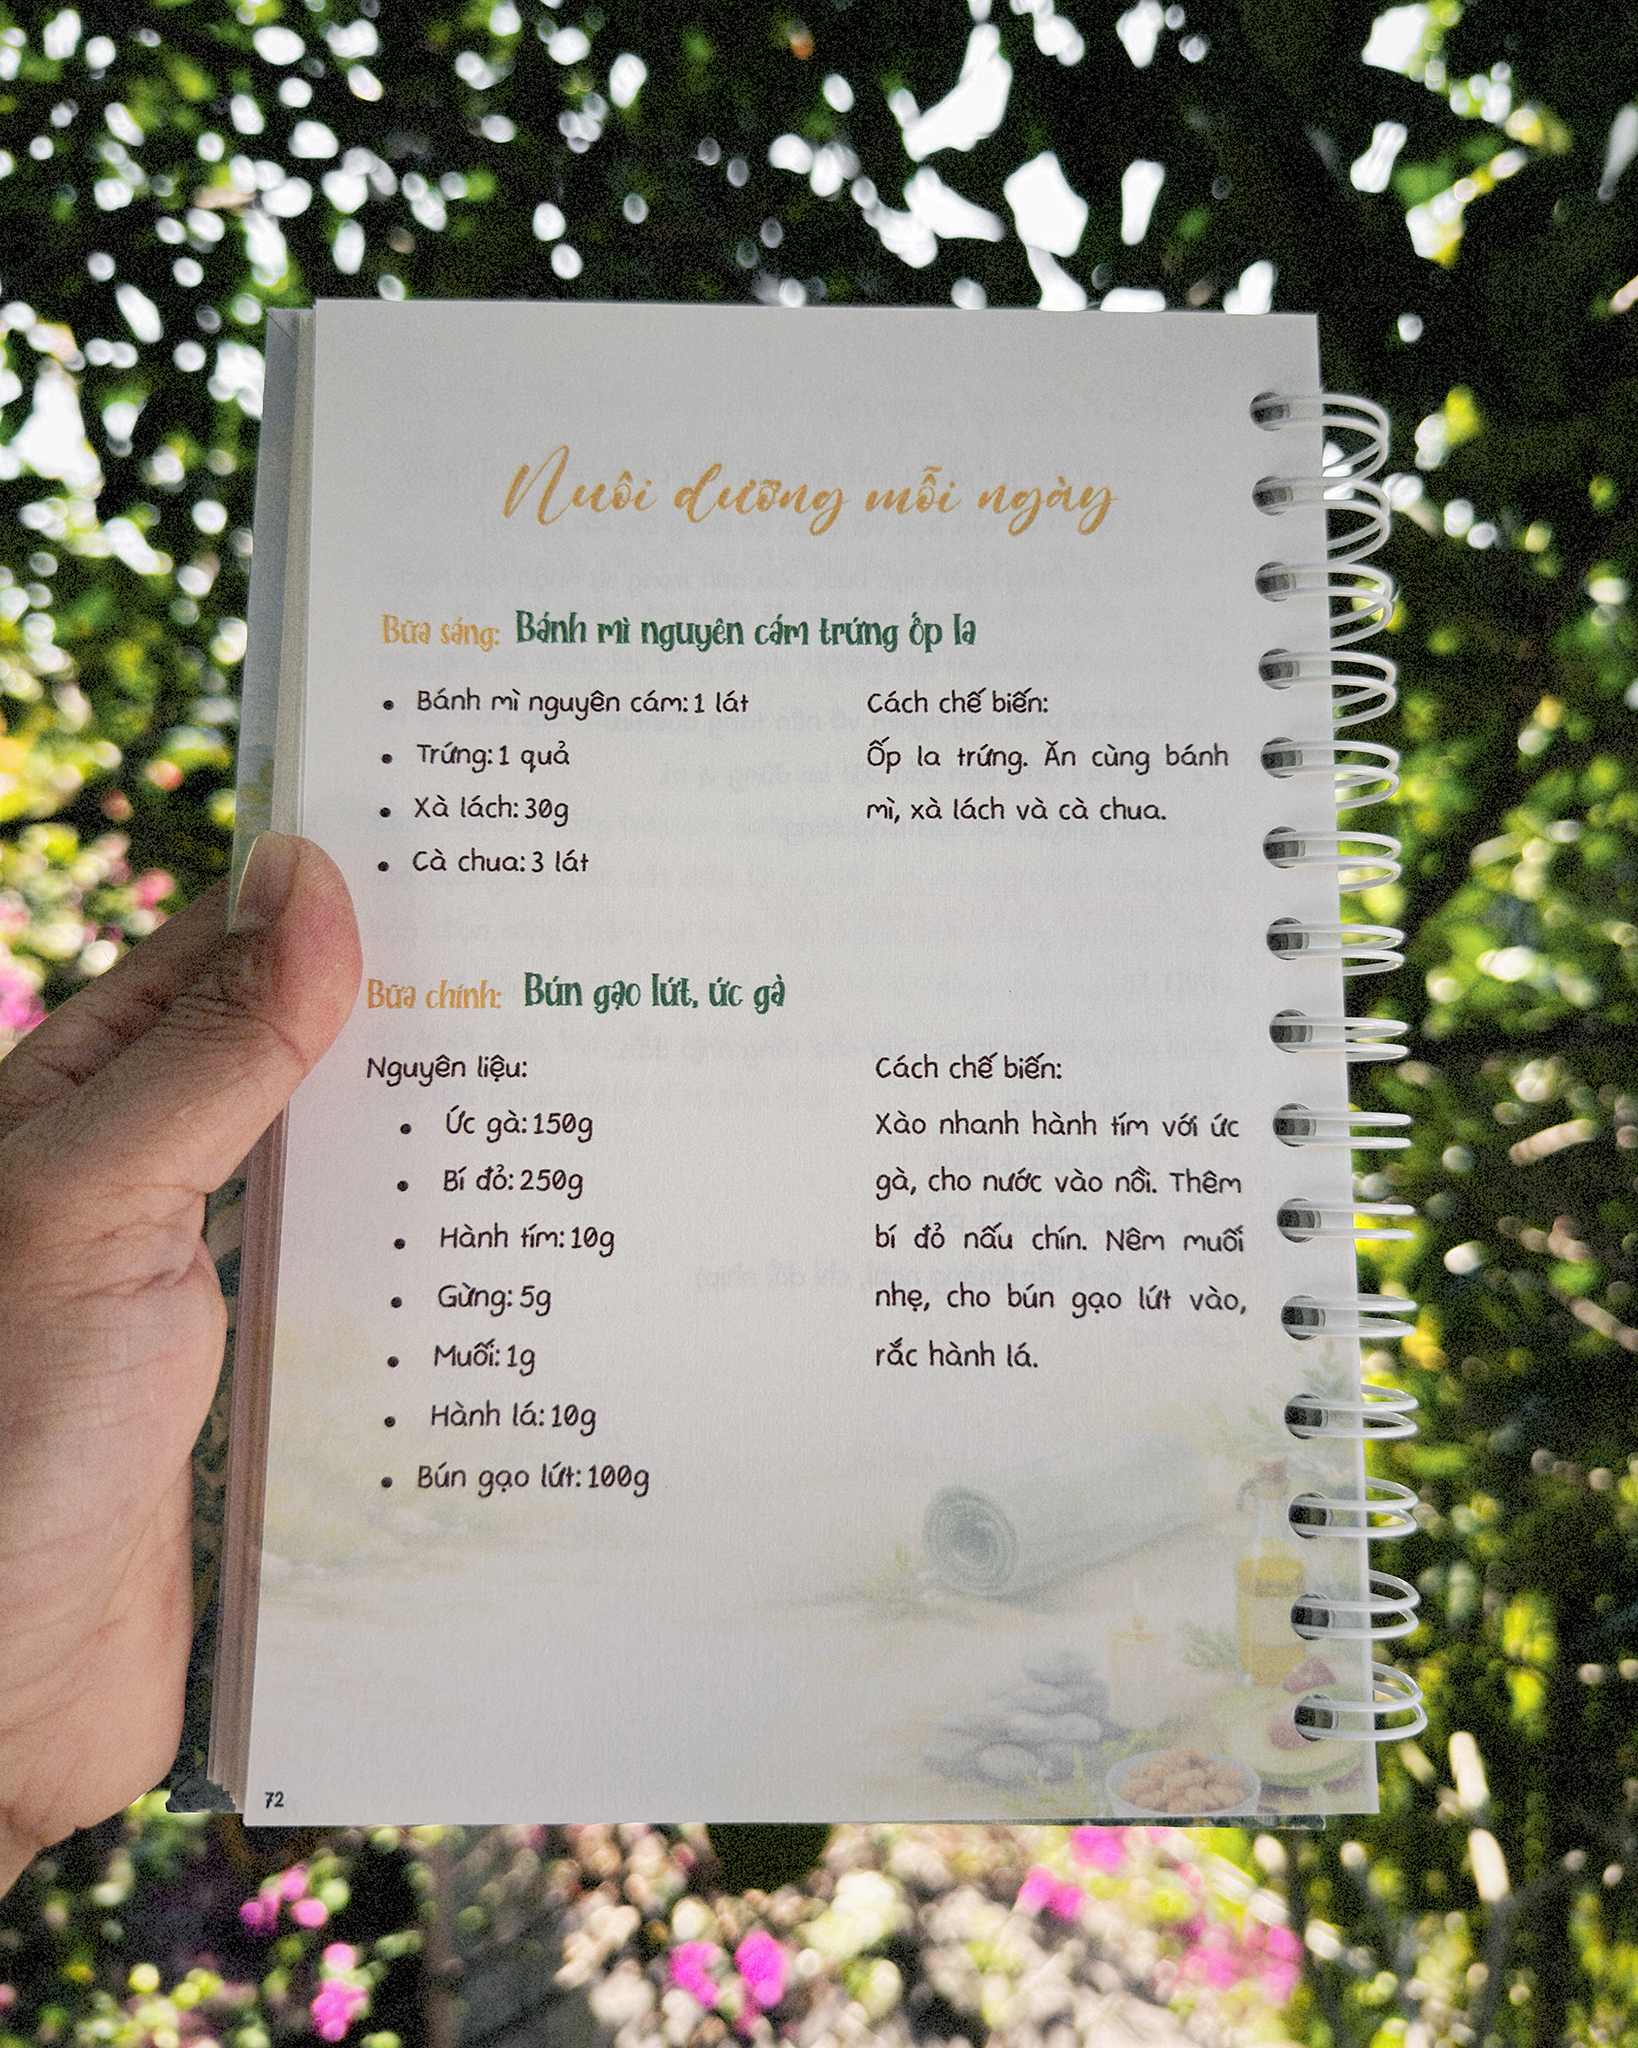 Nuôi dưỡng mỗi ngày
Bữa sáng: Bánh mì nguyên cám trứng ốp la
Bánh mì nguyên cám: 1 lát
Trứng: 1 quả
Xà lách: 30g
Cà chua: 3 lát
Cách chế biến:
Ốp la trứng. Ăn cùng bánh
mì, xà lách và cà chua.
Bữa chính: Bún gạo lứt, ức gà
Nguyên liệu:
Ức gà: 150g
Bí đỏ: 250g
Hành tím: 10g
Gừng: 5g
Muối: 1g
Hành lá: 10g
Bún gạo lứt: 100g
Cách chế biến:
Xào nhanh hành tím với ức
gà, cho nước vào nồi. Thêm
bí đỏ nấu chín. Nêm muối
nhẹ, cho bún gạo lứt vào,
rắc hành lá.
72